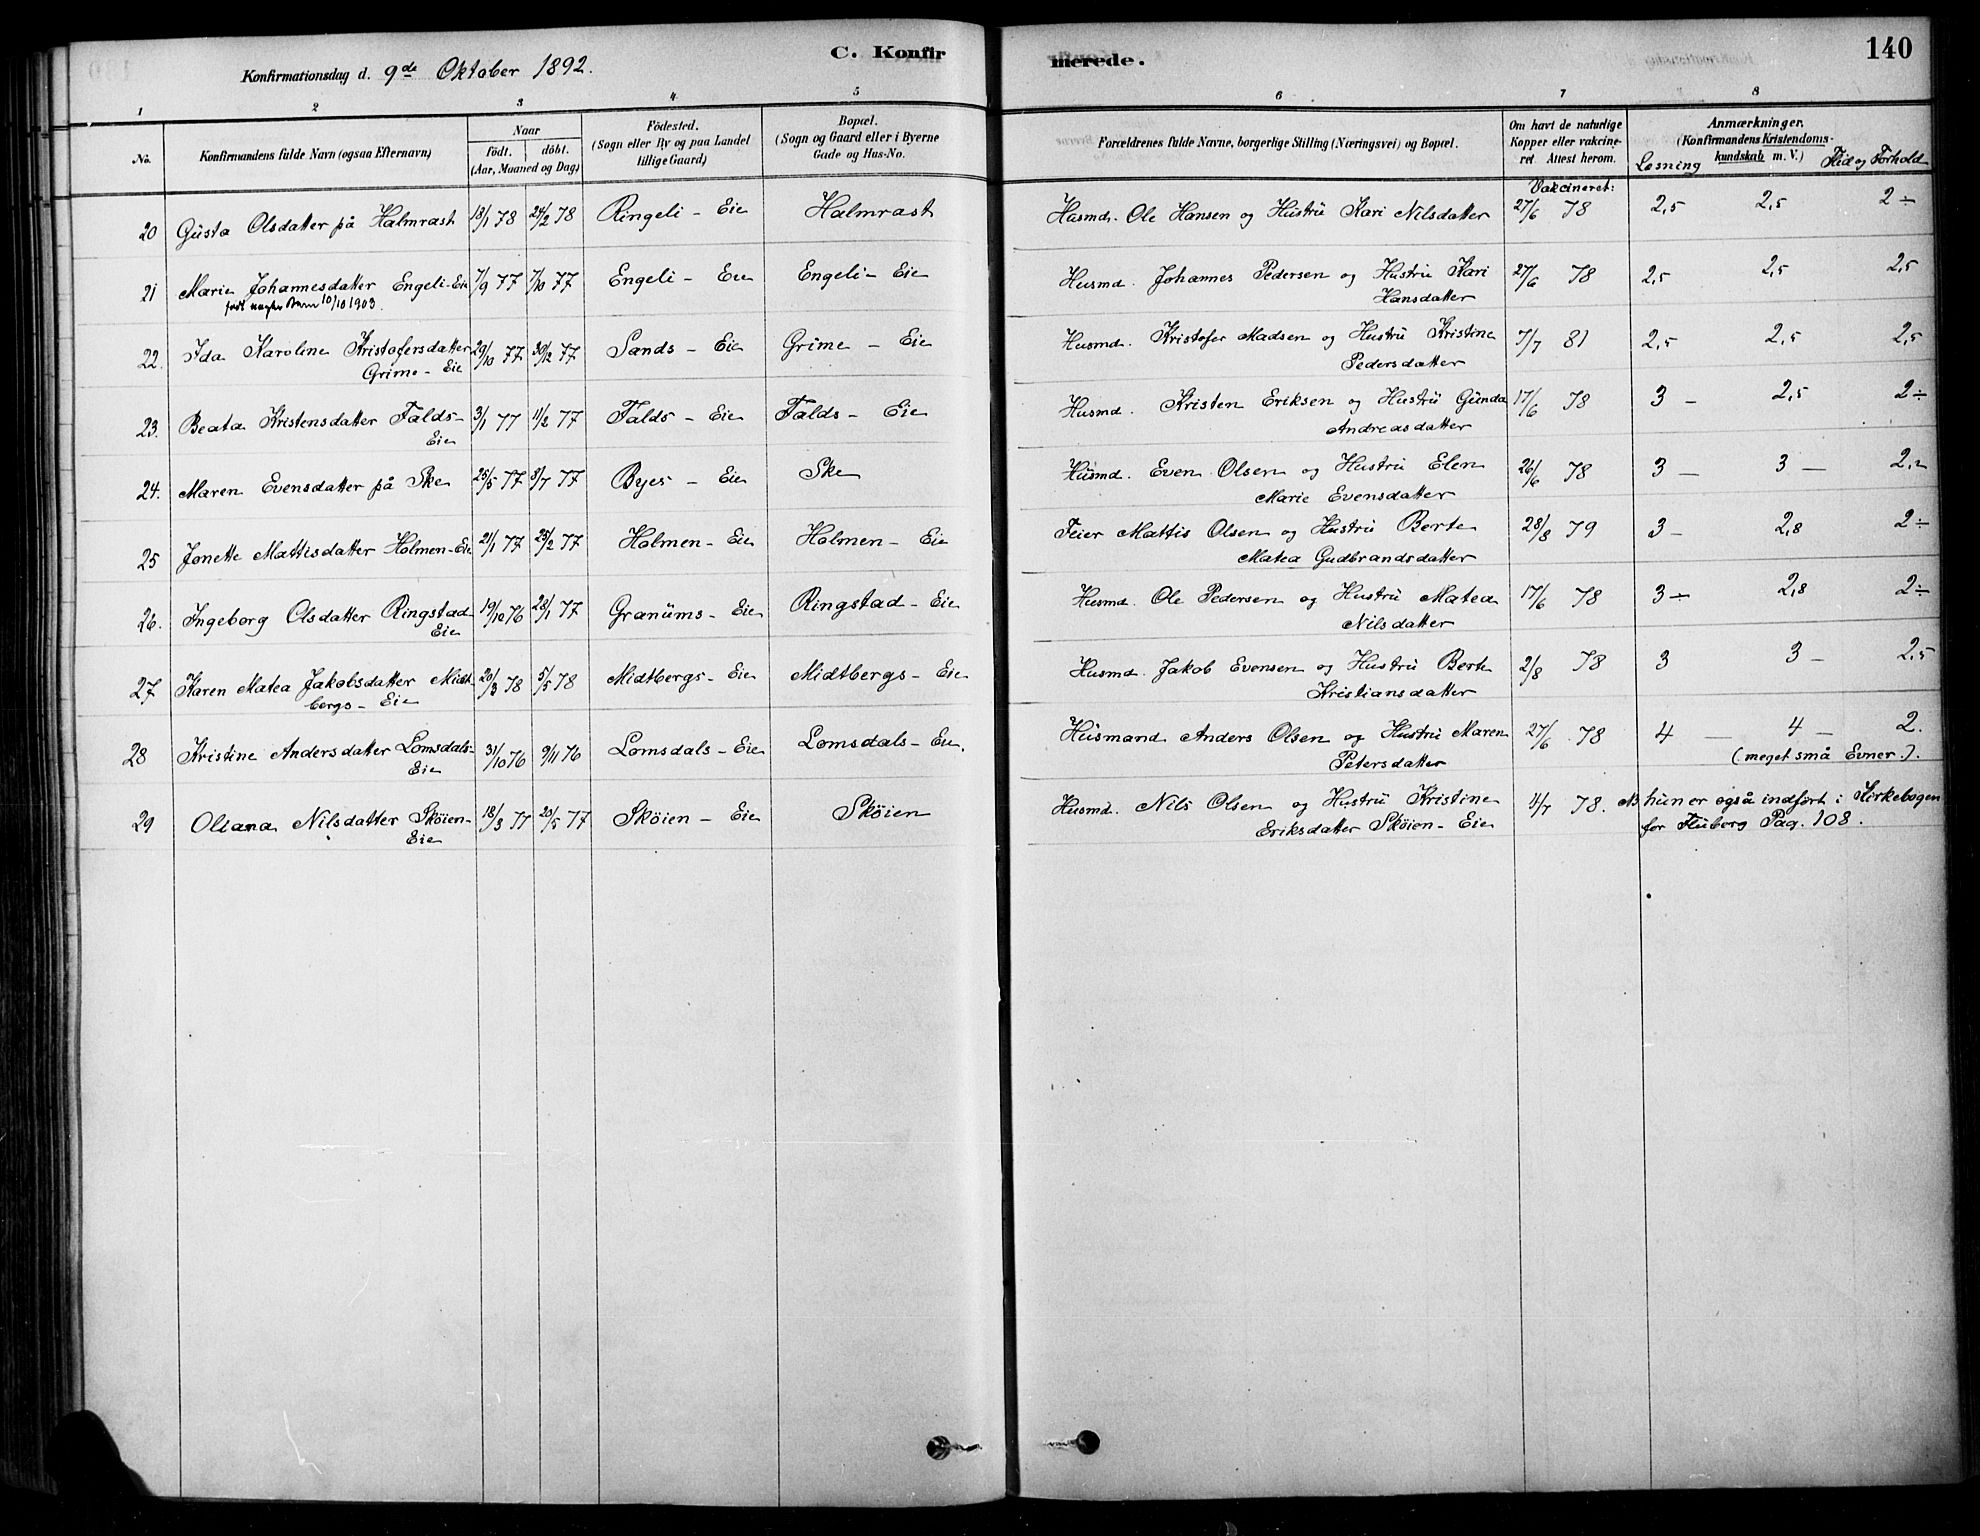 C. Konfir
merede.
140
Konfirmationsdag d. 9de Oktober 1892.
1 2 3 4 5 6 7 8
No.
Konfirmandens fulde Navn (ogsaa Efternavn)
Naar
födt. döbt.
(Aar, Maaned og Dag)
Födested.
(Sogn eller By og paa Landet
tillige Gaard)
Bopæl.
(Sogn og Gaard eller i Byerne
Gade og Hus-No.
Forældrenes fulde Navne, borgerlige Stilling (Næringsvei) og Bopæl.
Om havt de naturlige
Kopper eller vakcine-
ret. Attest herom.
Anmærkninger.
(Konfirmandens Kristendoms-
kundskab m. V.)
Læsning
Flid og Forhold
Vakcineret:
20 Gusta Olsdatter på Halmrast 18/1 78 24/2 78 Ringeli - Eie Halmrast Husmd. Ole Hansen og Hustru Kari Nilsdatter 27/6 78 2,5 2,5 2 ÷
21 Marie Johannesdatter Engeli-Eie 7/9 77 7/10 77 Engeli - Eie Engeli - Eie Husmd. Johannes Pedersen og Hustru Kari 27/6 78 2,5 2,5 2,5
10/10 1903.
Hansdatter
22. Ida Karoline Kristofersdatter 29/10 77 30/12 77 Sands - Eie Grime - Eie Husmd. Kristofer Madsen og Hustru Kristine 7/7 81 2,5 2,5 2,5
Grime - Eie
Pedersdatter
23. Beata Kristensdatter Falds- 3/1 77 11/2 77 Falds - Eie Falds - Eie Husmd. Kristen Eriksen og Hustru Gunda 17/6 78 3 - 2,5 2 ÷
Eie
Andreasdatter
24. Maren Evensdatter på Ske 25/5 77 8/7 77 Byes - Eie Ske Husmd. Even Olsen og Hustru Elen 26/6 78 3 - 3 -
Marie Evensdatter
25 Jonette Mattisdatter Holmen-Eie 21/1 77 25/2 77 Holmen - Eie Holmen - Eie Feier Mattis Olsen og Hustru Berte 28/8 79 3 - 2,8 2 ÷
Matea Gudbrandsdatter
26. Ingeborg Olsdatter Ringstad 19/10 76 28/1 77 Granums - Eie Ringstad - Eie Husmd. Ole Pedersen og Hustru Matea 17/6 78 3 ÷ 2,8 2 ÷
Eie
Nilsdatter
27 Karen Matea Jakobsdatter Midt- 20/3 78 5/5 78 Midtbergs - Eie Midtbergs - Eie Husmd. Jakob Evensen og Hustru Berte 2/8 78 3 3 - 2,5
bergs - Eie
Kristiansdatter
28 Kristine Andersdatter Lomsdals- 31/10 76 9/11 76 Lomsdals - Eie Lomsdals - Eie. Husmand Anders Olsen og Hustru Maren 27/6 78 4 - 4 - 2.
Eie
Petersdatter
(meget små Evner.).
29 Oliana Nilsdatter Sköien- 18/3 77 20/5 77 Sköien - Eie Sköien Husmd. Nils Olsen og Hustru Kristine 4/7 78. NB hun er også indført i Kirkebogen
Eie
Eriksdatter Sköien - Eie
for Fluberg Pag. 108.